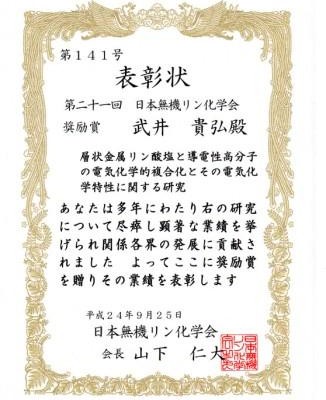 第１４１号
表彰状
第二十一回　日本無機リン化学会
奨励賞　武井　貴弘殿
層状金属リン酸塩と導電性高分子
の電気化学的複合化とその電気化
学特性に関する研究
あなたは多年にわたり右の研究
について尽瘁し顕著な業績を挙
げられ関係各界の発展に貢献さ
れました　よってここに奨励賞
を贈りその業績を表彰します
平成２４年９月２５日
日本無機リン化学会
会長　山下　仁大